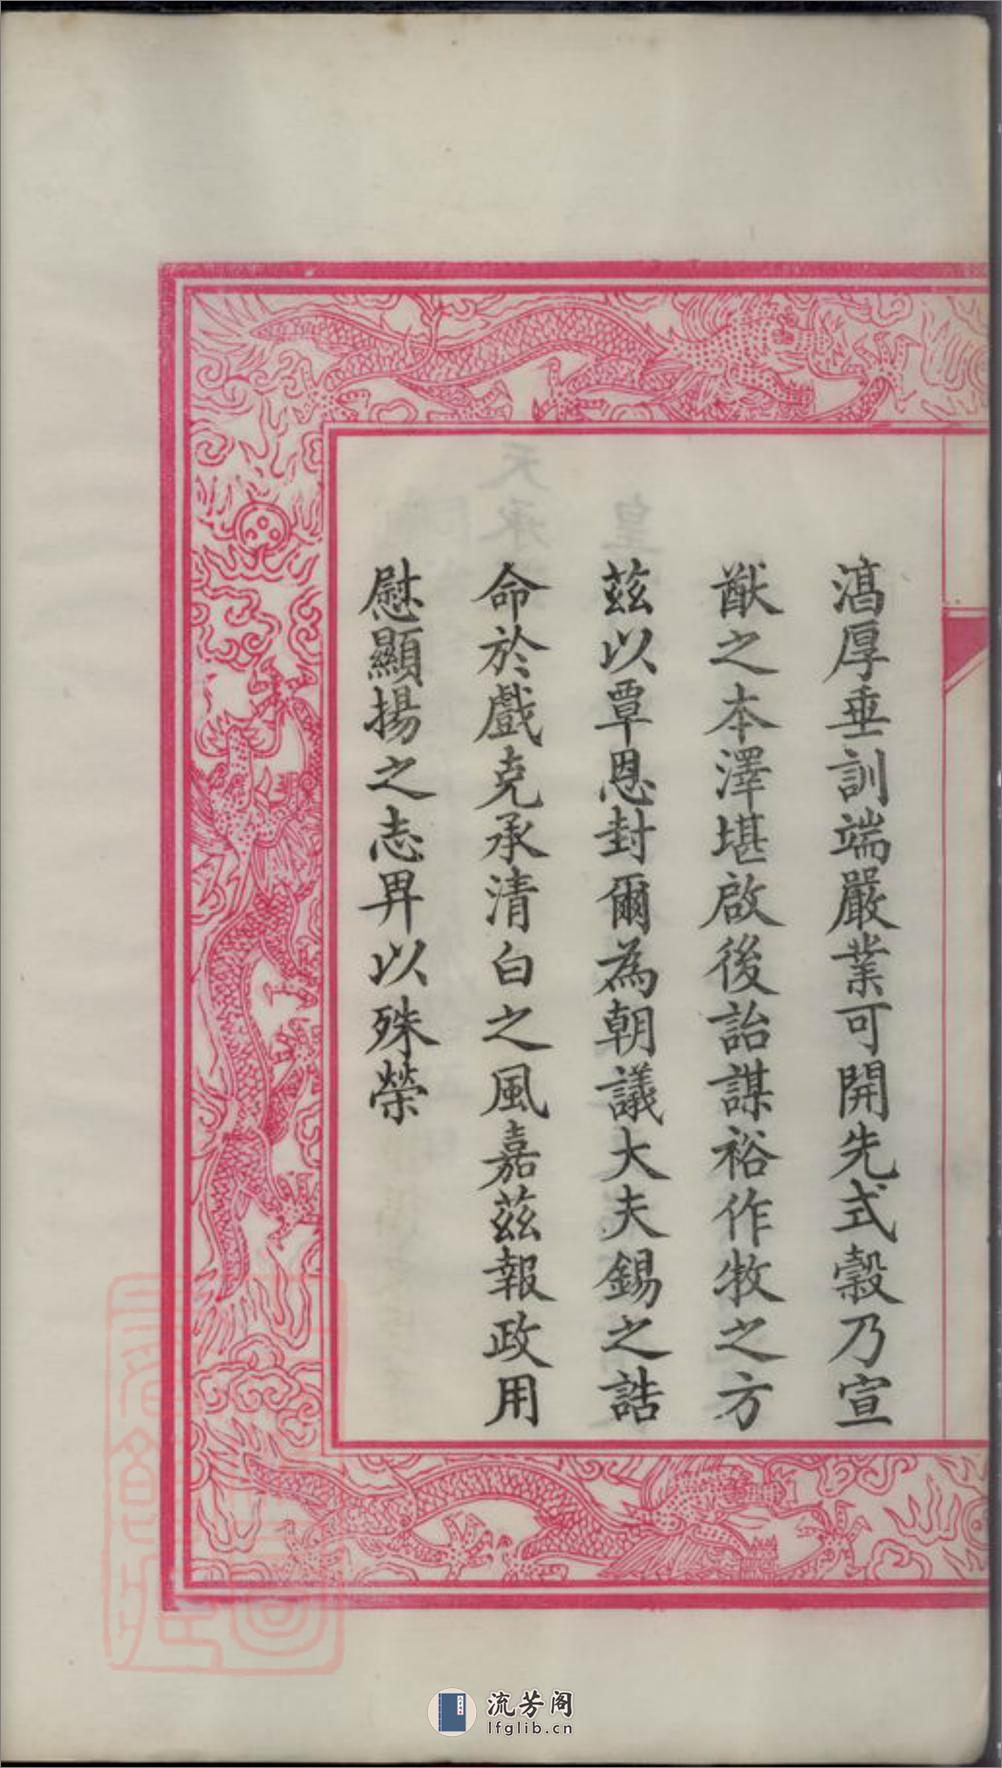 滈厚垂訓端嚴業可開先式穀乃宣
猷之本澤堪啟後詒謀裕作牧之方
茲以覃恩封爾為朝議大夫錫之誥
命於戲克承清白之風嘉茲報政用
慰顯揚之志畀以殊榮
流芳阁
lfglib.cn